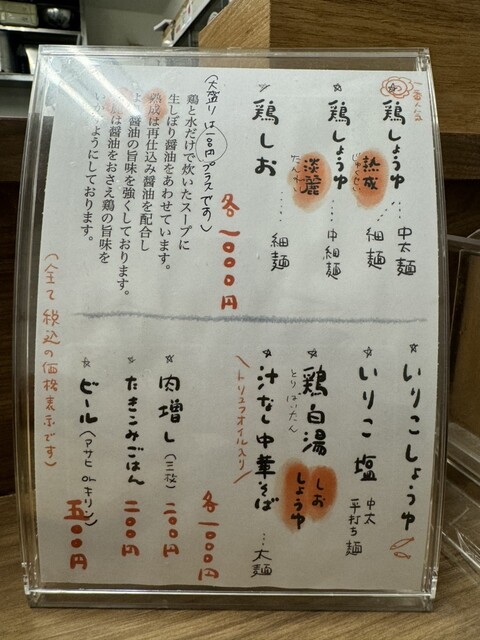 一番人気
☆鶏しょうゆ 熟成 じゅくせい …… 中太麺 細麺
☆鶏しょうゆ 淡麗 たんれい …… 中細麺
☆鶏しお …… 細麺
各一〇〇〇円
(大盛りは100円プラスです)
鶏と水だけで炊いたスープに
生しぼり醤油をあわせています。
熟成は再仕込み醤油を配合し
醤油の旨味を強くしております。
は醤油をおさえ鶏の旨味を
ようにしております。
☆いりこしょうゆ
☆いりこ塩 中太 平打ち麺
☆鶏白湯 とりぱいたん しお しょうゆ
☆汁なし中華そば … 太麺
\トリュフオイル入り/
各一〇〇〇円
☆肉増し(三枚) 二〇〇円
☆たきこみごはん 二〇〇円
☆ビール(アサヒ or キリン) 五〇〇円
(全て税込の価格表示です)